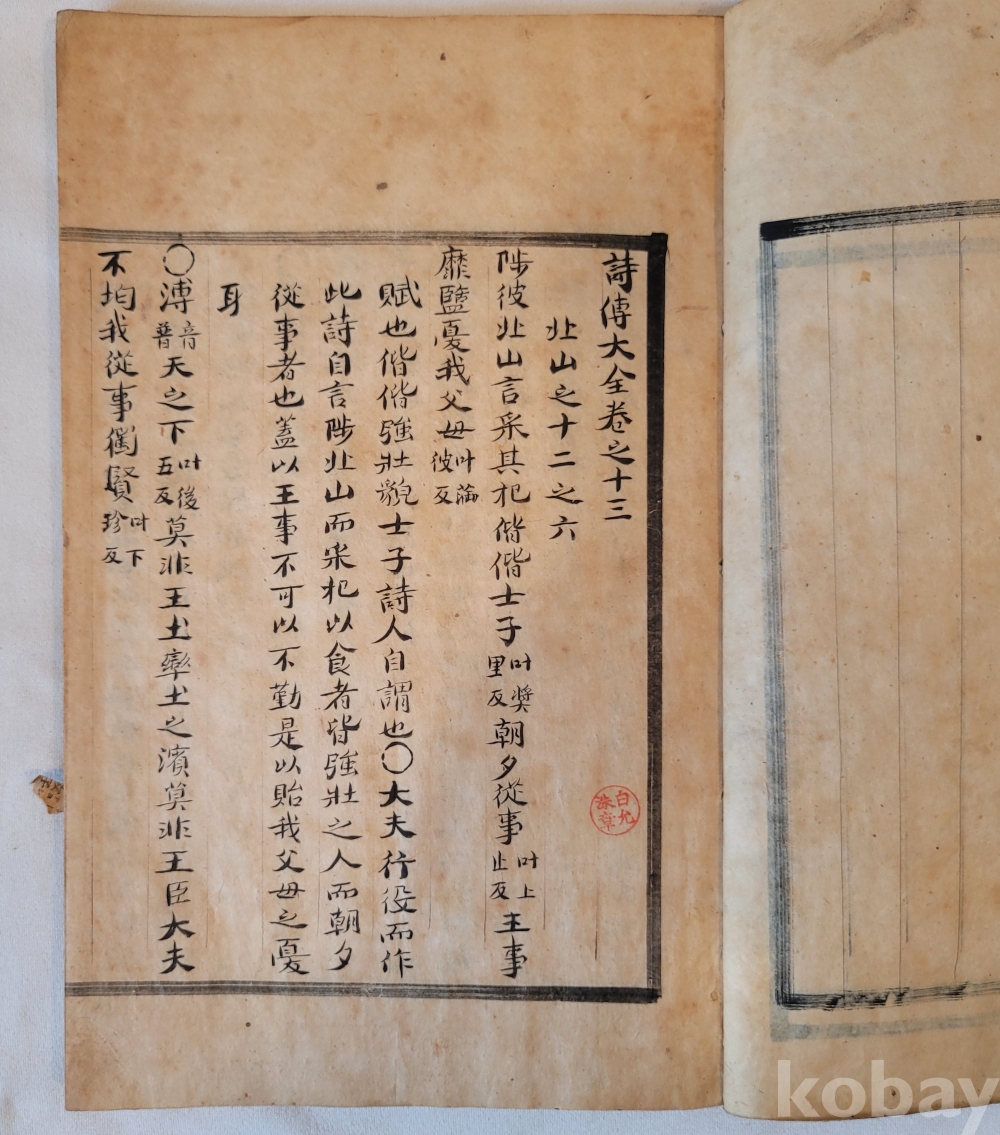 詩傳大全卷之十三
北山之十二之六
陟彼北山言采其杞偕偕士子叶奬里反朝夕從事叶上止反王事
靡盬憂我父母叶滿彼反
賦也偕偕强壯貌士子詩人自謂也〇大夫行役而作
此詩自言陟北山而采杞以食者皆强壯之人而朝夕
從事者也蓋以王事不可以不勤是以貽我父母之憂
耳
〇溥音普天之下叶後五反莫非王土率土之濱莫非王臣大夫
不均我從事獨賢叶下珍反
白允洙章
kobay